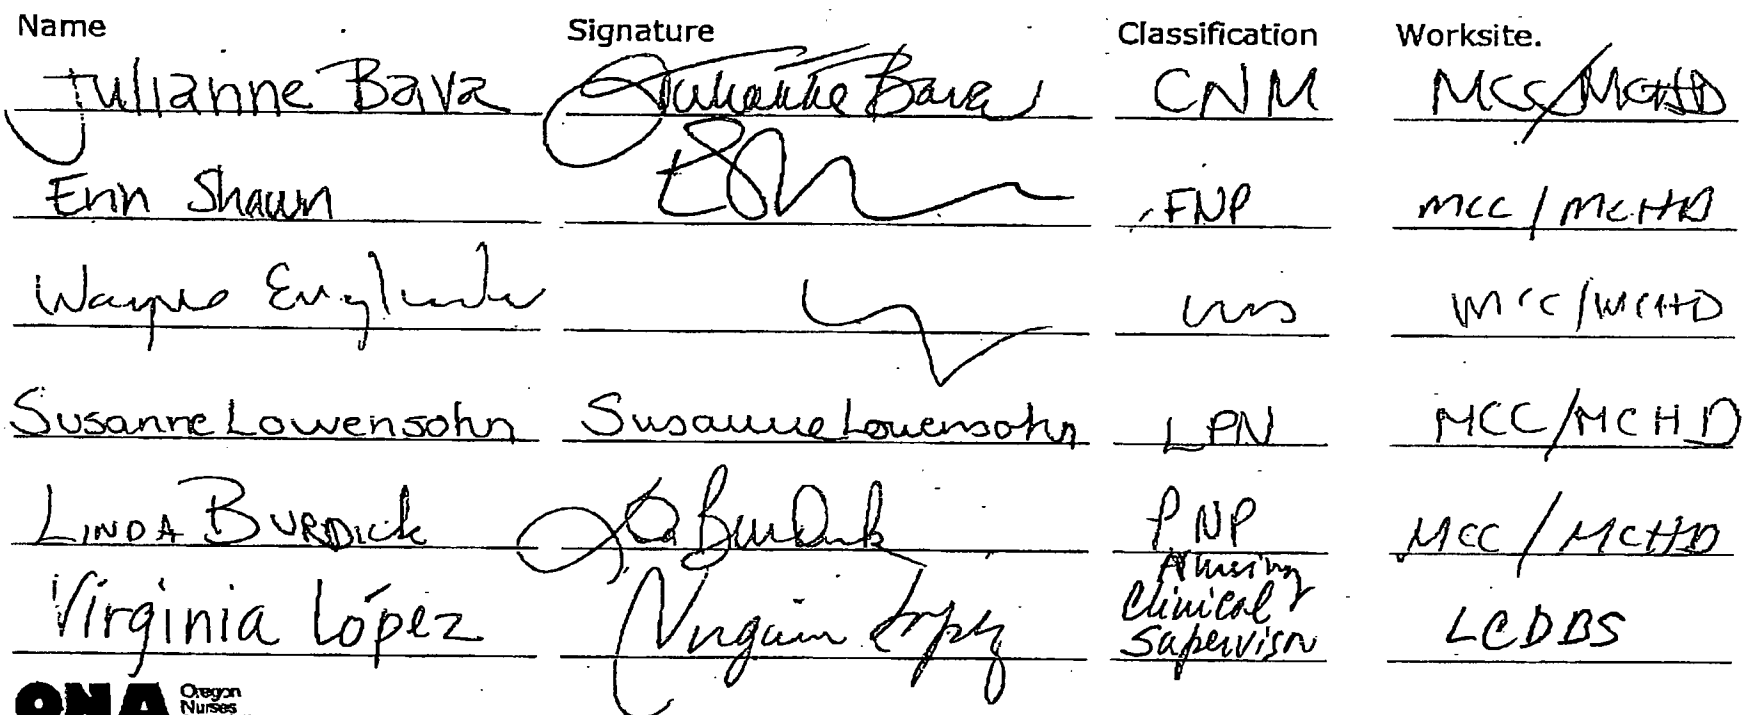 Name Signature Classification Worksite.
Julianne Bava Julianne Bava CNM MCC/MCHD
Erin Shawn FNP MCC/MCHD
Wayne MCC/MCHD
Susanne Lowensohn Susanne Lowensohn LPN MCC/MCHD
Linda Burdick PNP MCC/MCHD
Virginia López Virginia Lopez Nursing Clinical Supervisor LCDBS
ONA Oregon
Nurses